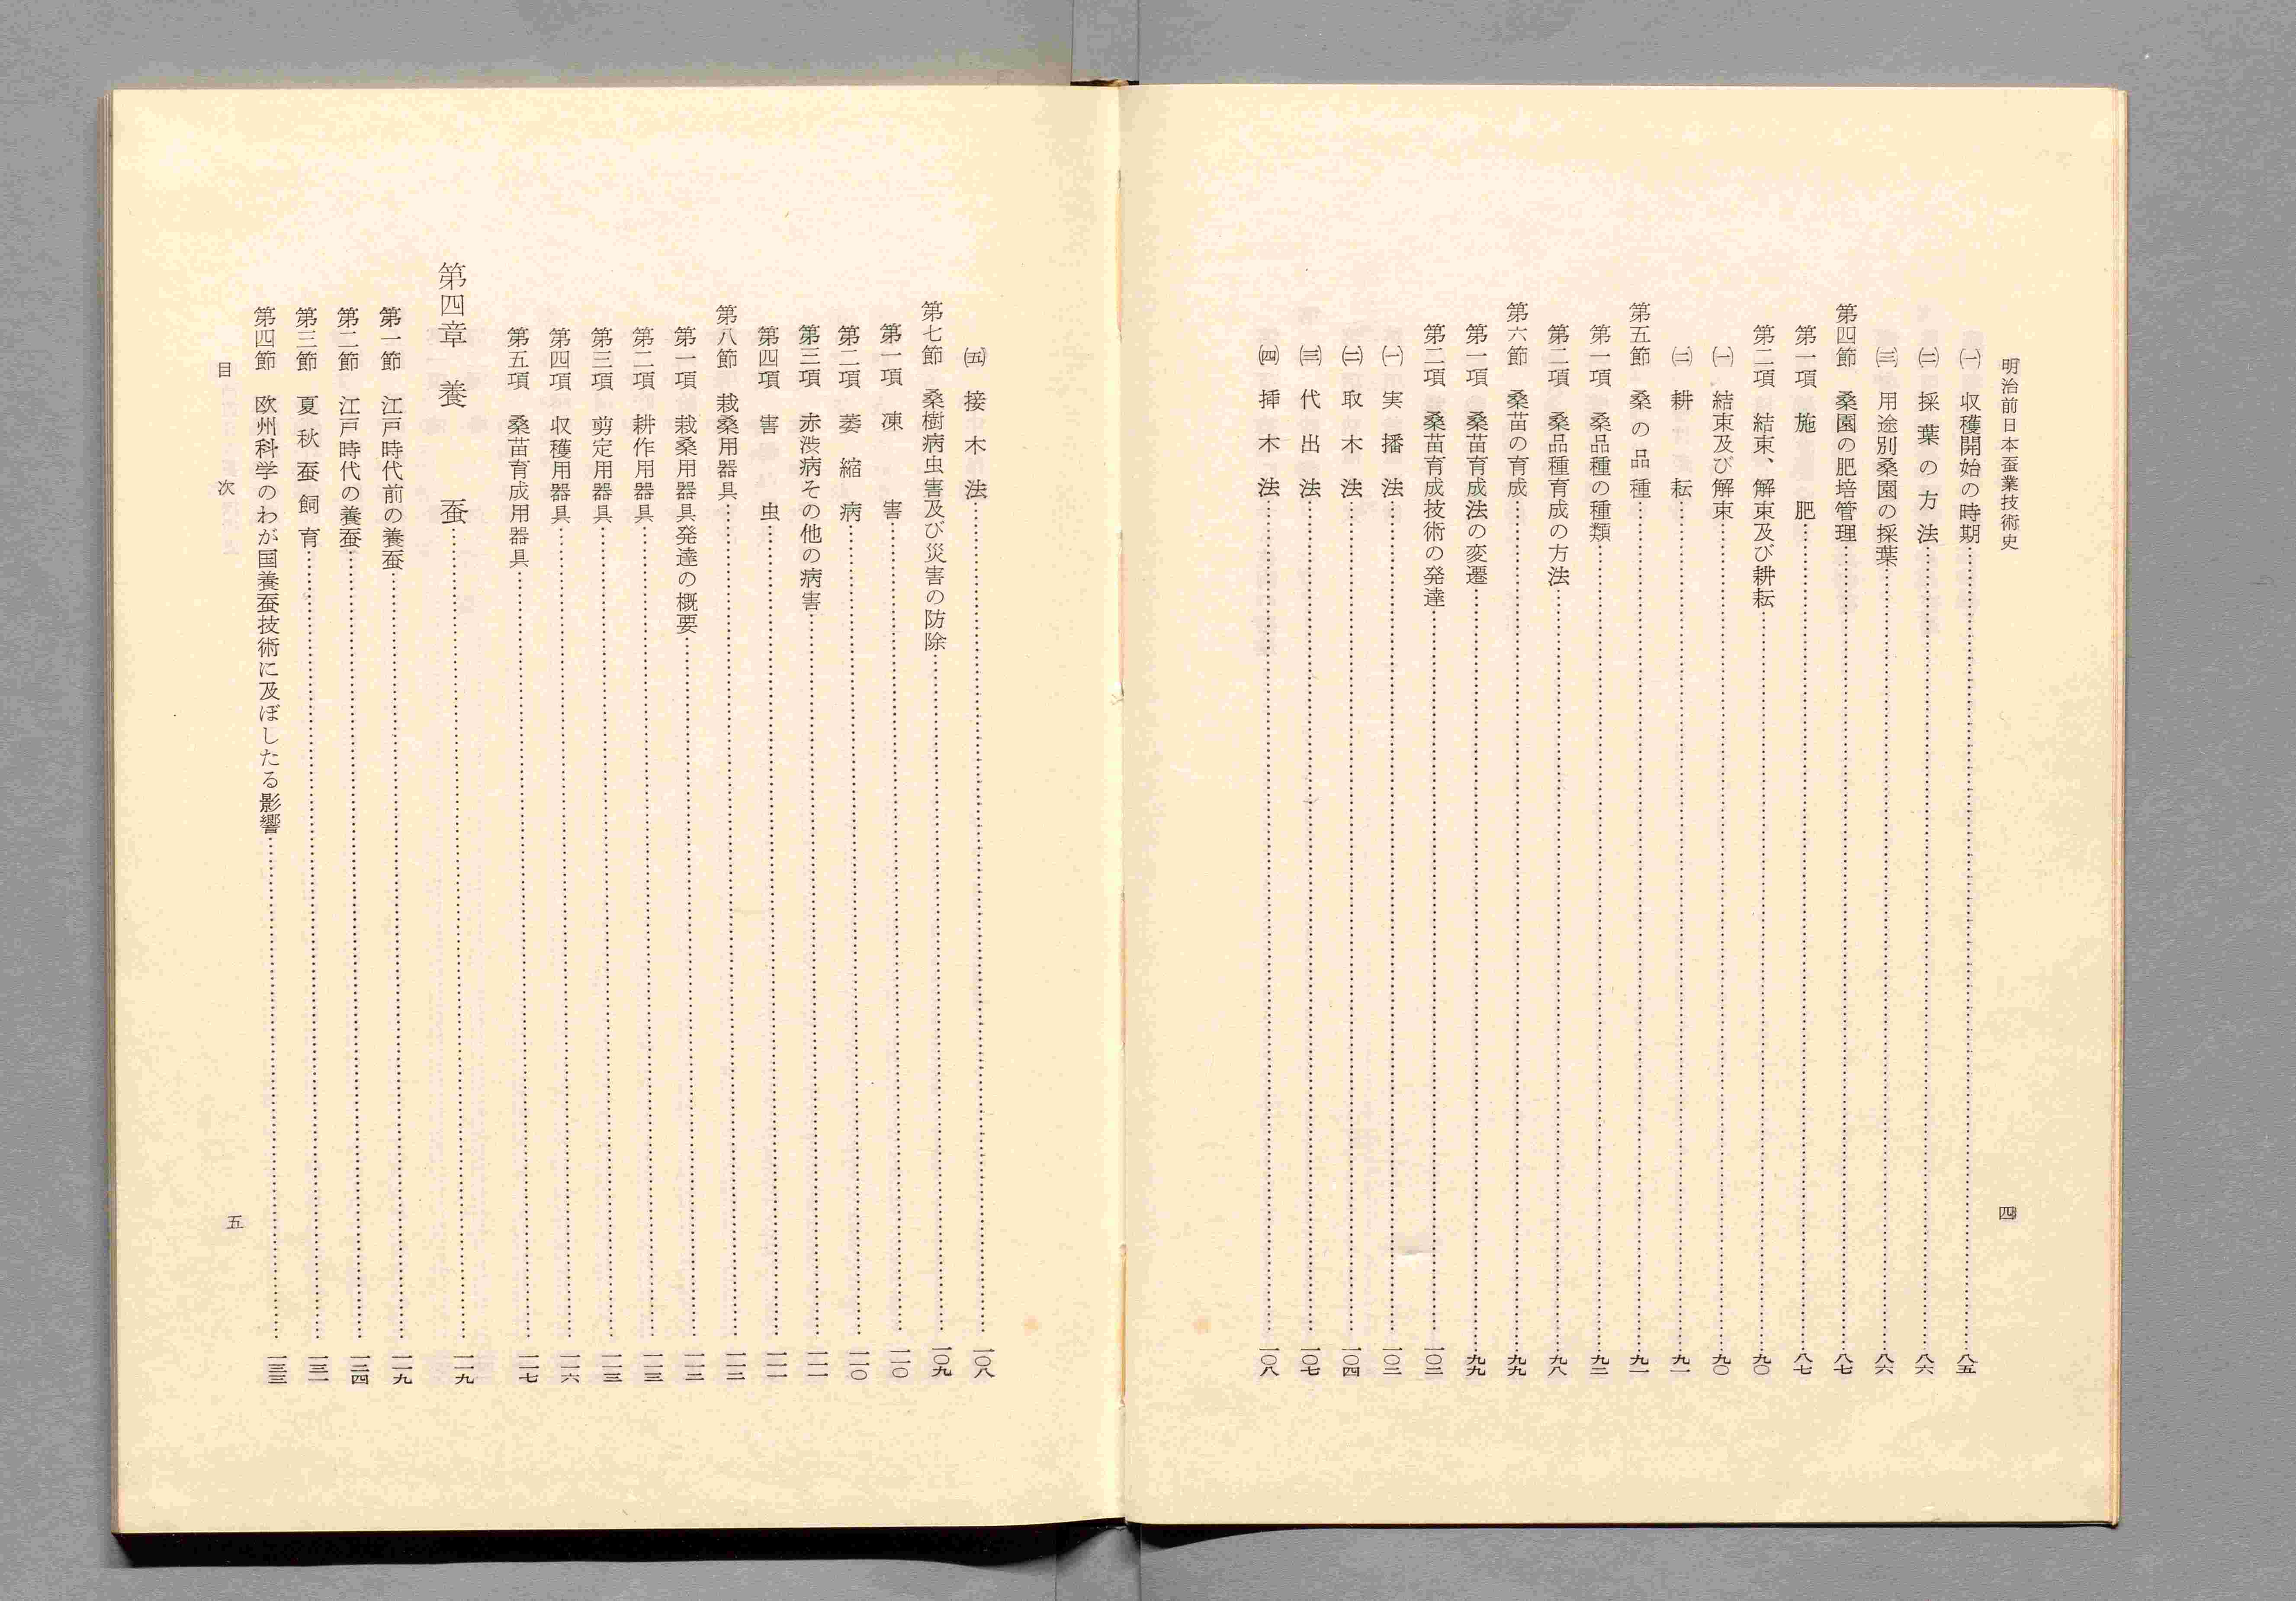 明治前日本蚕業技術史
四
㈠ 収穫開始の時期……八五
㈡ 採葉の方法……八六
㈢ 用途別桑園の採葉……八六
第四節 桑園の肥培管理……八七
第一項 施肥……八七
第二項 結束、解束及び耕耘……九〇
㈠ 結束及び解束……九〇
㈡ 耕耘……九一
第五節 桑の品種……九一
第一項 桑品種の種類……九二
第二項 桑品種育成の方法……九八
第六節 桑苗の育成……九九
第一項 桑苗育成法の変遷……九九
第二項 桑苗育成技術の発達……一〇二
㈠ 実播法……一〇二
㈡ 取木法……一〇四
㈢ 代出法……一〇七
㈣ 挿木法……一〇八
㈤ 接木法……一〇八
第七節 桑樹病虫害及び災害の防除……一〇九
第一項 凍害……一一〇
第二項 萎縮病……一一〇
第三項 赤渋病その他の病害……一一一
第四項 害虫……一一一
第八節 栽桑用器具……一一二
第一項 栽桑用器具発達の概要……一一二
第二項 耕作用器具……一一三
第三項 剪定用器具……一一三
第四項 収穫用器具……一一六
第五項 桑苗育成用器具……一一七
第四章 養蚕……一一九
第一節 江戸時代前の養蚕……一一九
第二節 江戸時代の養蚕……一二四
第三節 夏秋蚕飼育……一三一
第四節 欧州科学のわが国養蚕技術に及ぼしたる影響……一三三
目次
五